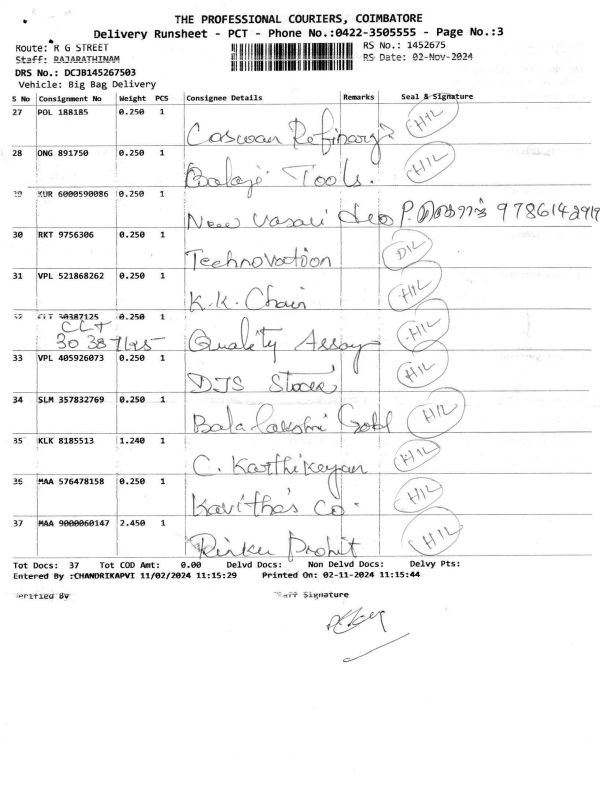 THE PROFESSIONAL COURIERS, COIMBATORE
Delivery Runsheet - PCT - Phone No.:0422-3505555 - Page No.:3
Route: R G STREET RS No.: 1452675
Staff: RAJARATHINAM RS Date: 02-Nov-2024
DRS No.: DCJB145267503
Vehicle: Big Bag Delivery
S No Consignment No Weight PCS Consignee Details Remarks Seal & Signature
27 POL 188185 0.250 1 HIL
Refinary
28 ONG 891750 0.250 1 HIL
Balaji Tools.
29 KUR 6000590086 0.250 1
New 9786142919
30 RKT 9756306 0.250 1
Technovation
31 VPL 521868262 0.250 1 HIL
K.K. Chain
32 CLT 30387125 0.250 1 HIL
CLT
30 38 7125 Quality Assay
33 VPL 405926073 0.250 1 HIL
DJS Stores
34 SLM 357832769 0.250 1 HIL
Balalakshmi Gold
35 KLK 8185513 1.240 1 HIL
C. Karthikeyan
36 MAA 576478158 0.250 1 HIL
Kavitha's Co.
37 MAA 9000060147 2.450 1 HIL
Rinku
Tot Docs: 37 Tot COD Amt: 0.00 Delvd Docs: Non Delvd Docs: Delvy Pts:
Entered By :CHANDRIKAPVI 11/02/2024 11:15:29 Printed On: 02-11-2024 11:15:44
Verified By Staff Signature